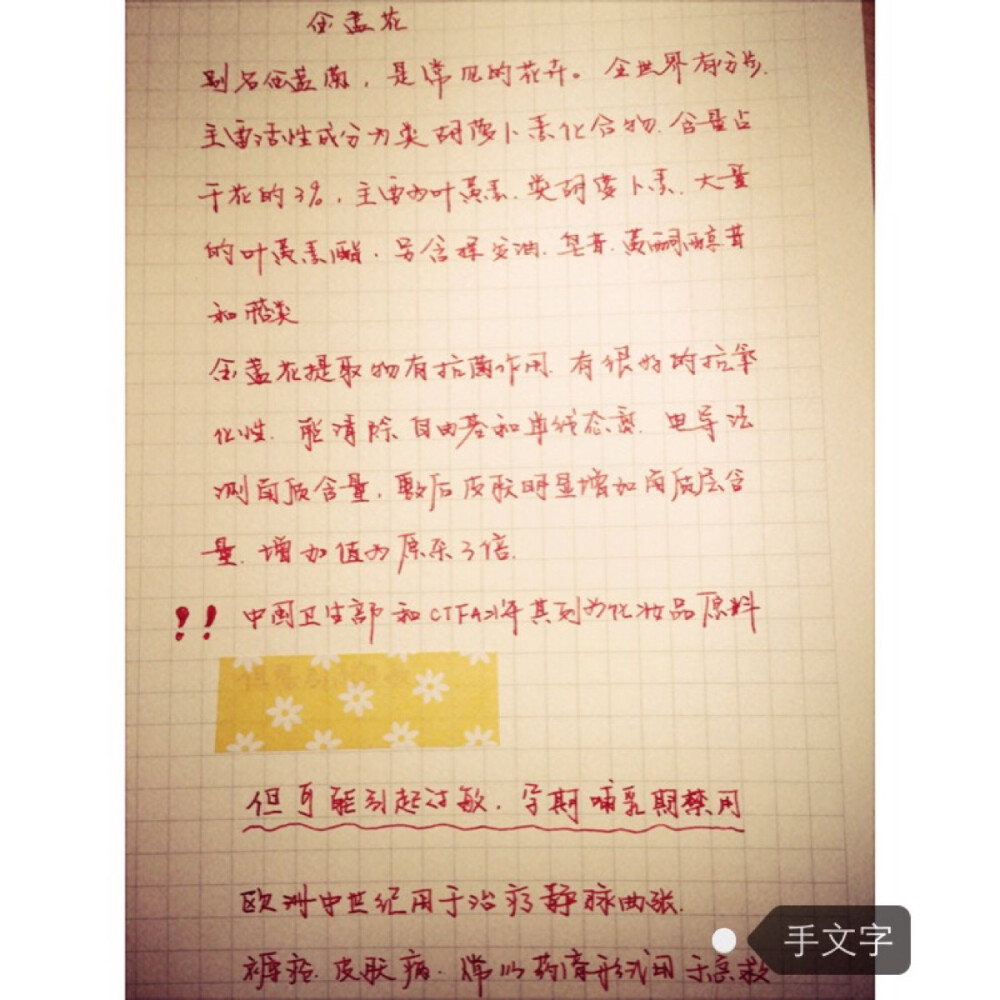 金盏花
别名金盏菊，是常见的花卉。全世界有分步.
主要活性成分为类胡萝卜素化合物.含量占
干花的3%，主要为叶黄素.类胡萝卜素.大量
的叶黄素酯.另含挥发油.皂苷.黄酮醇苷
和醌类
金盏花提取物有抗菌作用.有很好的抗氧
化性.能清除自由基和单线态氧.电导法
测角质含量，敷后皮肤明显增加角质层含
量.增加值为原来3倍.
!! 中国卫生部和CTFA将其列为化妆品原料
但可能引起过敏.孕期哺乳期禁用
欧洲中世纪用于治疗静脉曲张.
褥疮.皮肤病.常以药膏形式用于急救
手文字